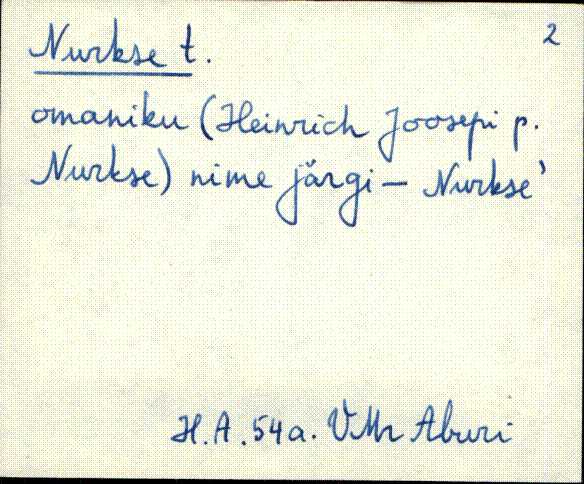 2
Nurkse t.
omaniku (Heinrich Joosepi p.
Nurkse) nime järgi – Nurkse'
H.A. 54 a. VMr Aburi